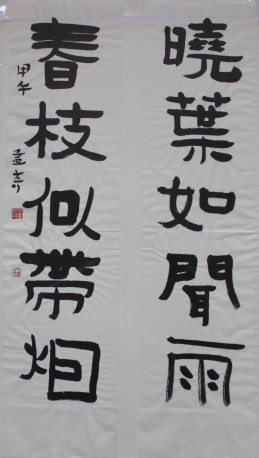 曉葉如聞雨
春枝似帶烟
甲午 孟奇